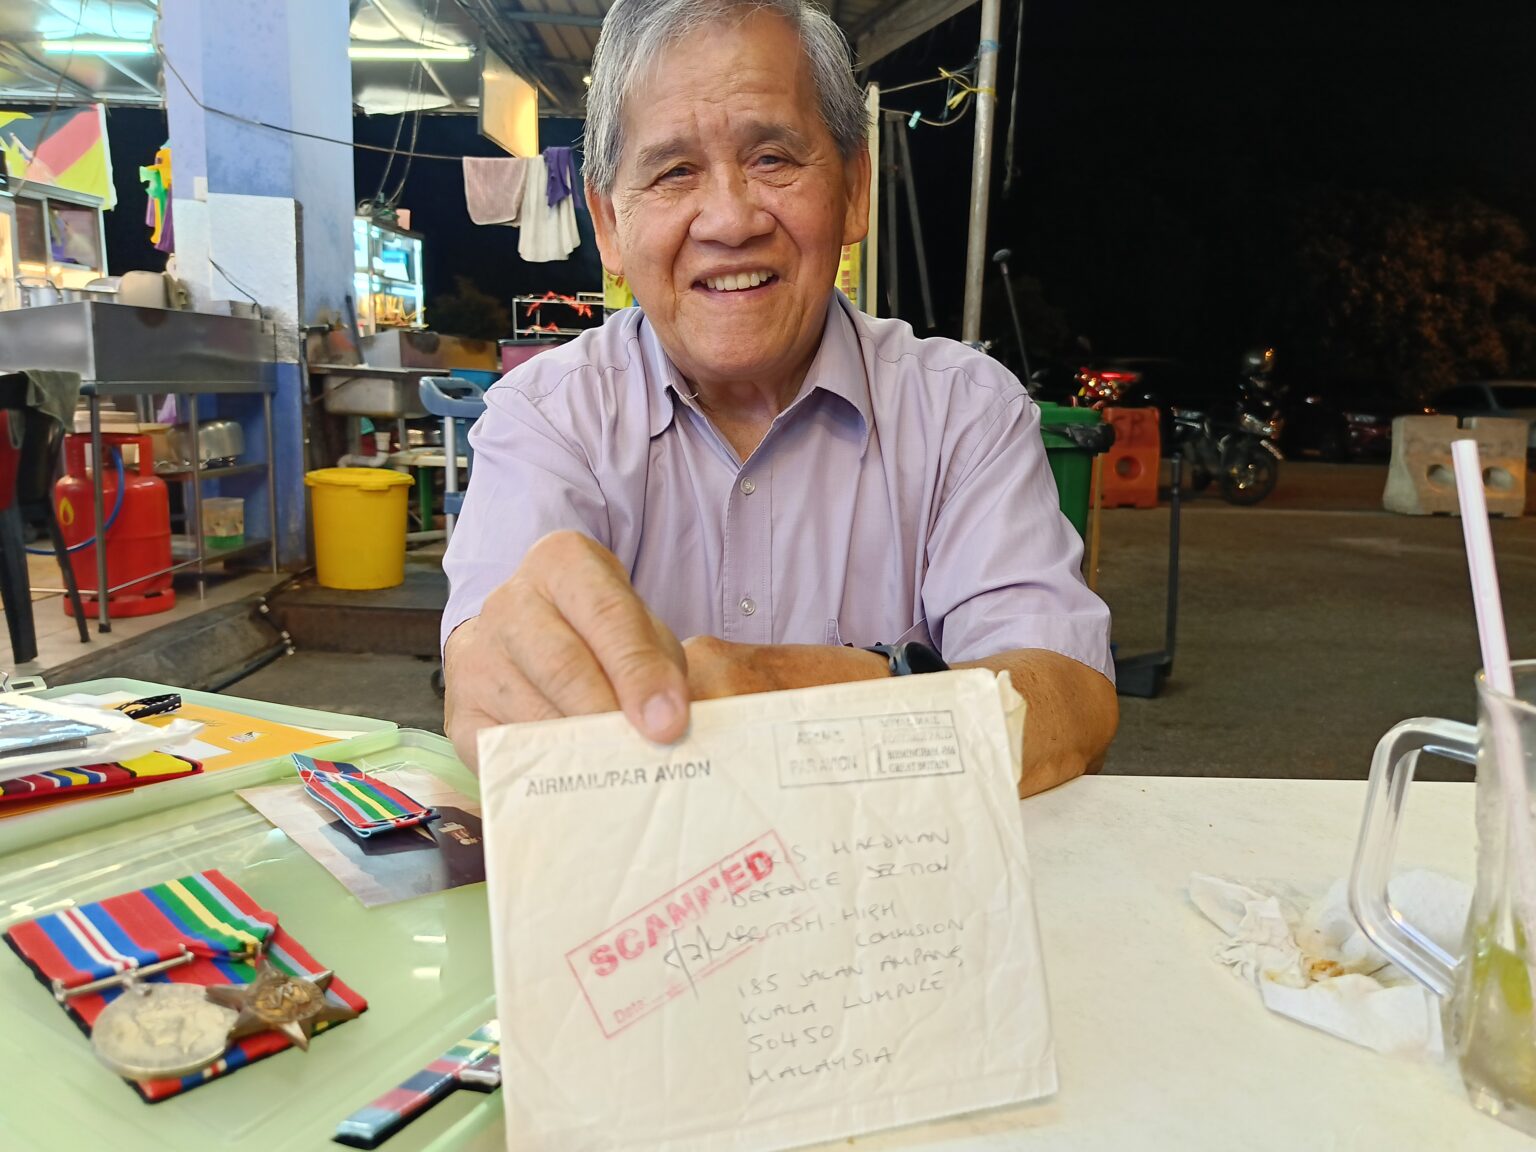 AIRMAIL/PAR AVION
PAR AVION
ROYAL MAIL
BIRMINGHAM
GREAT BRITAIN
SCANNED
Date:
HARDMAN
DEFENCE SECTION
BRITISH HIGH
COMMISSION
185 JALAN AMPANG,
KUALA LUMPUR
50450
MALAYSIA